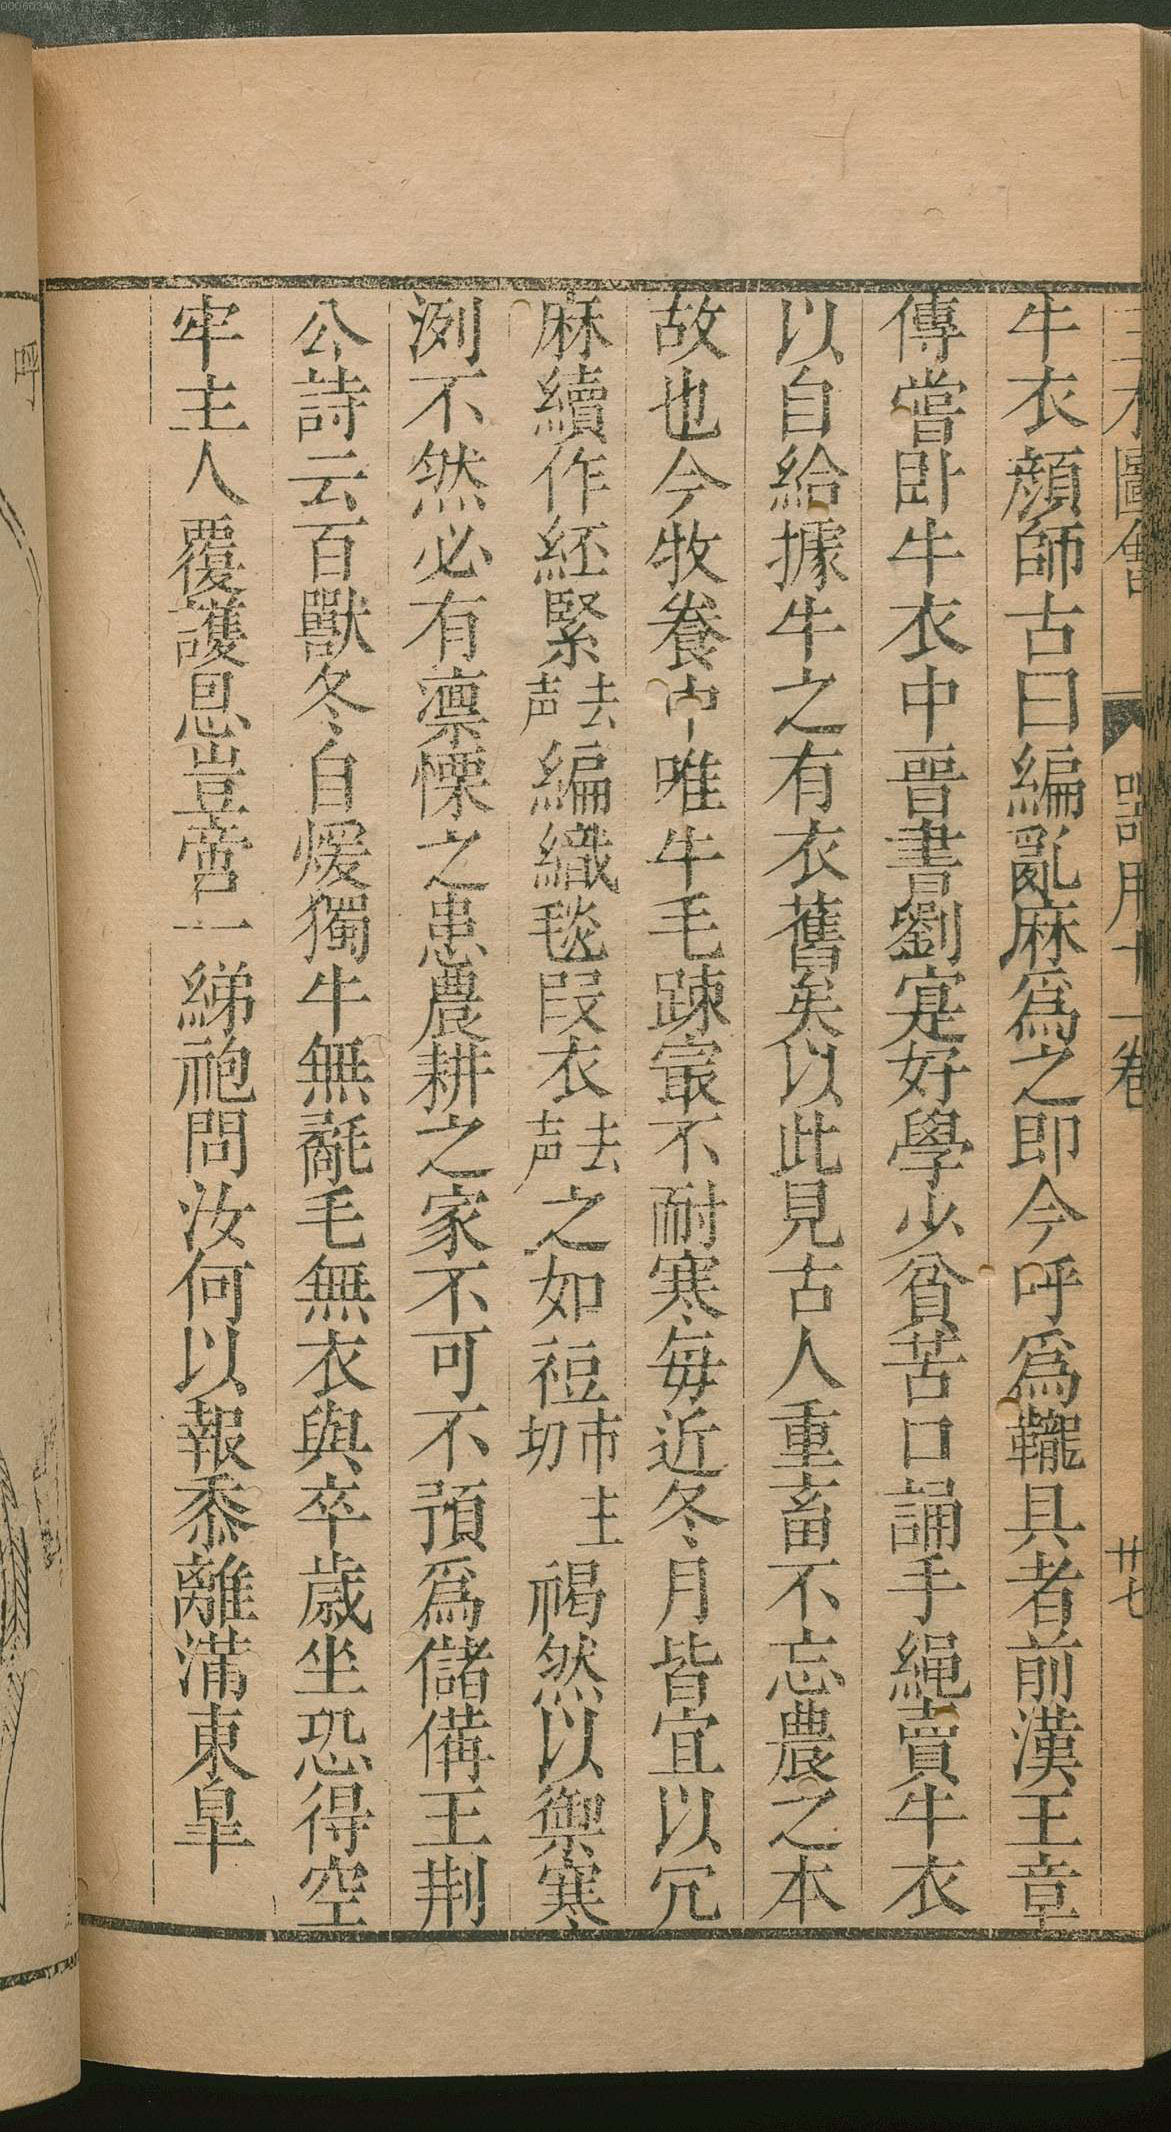 三才圖會 器用十一卷 廿七
牛衣顔師古曰編亂麻爲之即今呼爲䪊具者前漢王章
傳嘗卧牛衣中晉書劉寔好學少貧苦口誦手繩賣牛衣
以自給據牛之有衣舊矣以此見古人重畜不忘農之本
故也今牧養中唯牛毛踈㝡不耐寒毎近冬月皆宜以冗
麻續作經緊去声編織毯段衣去声之如裋市主切褐然以禦寒
冽不然必有凛慄之患農耕之家不可不預爲儲備王荆
公詩云百獸冬自煖獨牛無氄毛無衣與卒歳坐恐得空
牢主人覆護恩豈啻一綈袍問汝何以報黍離滿東皐
呼
00060340